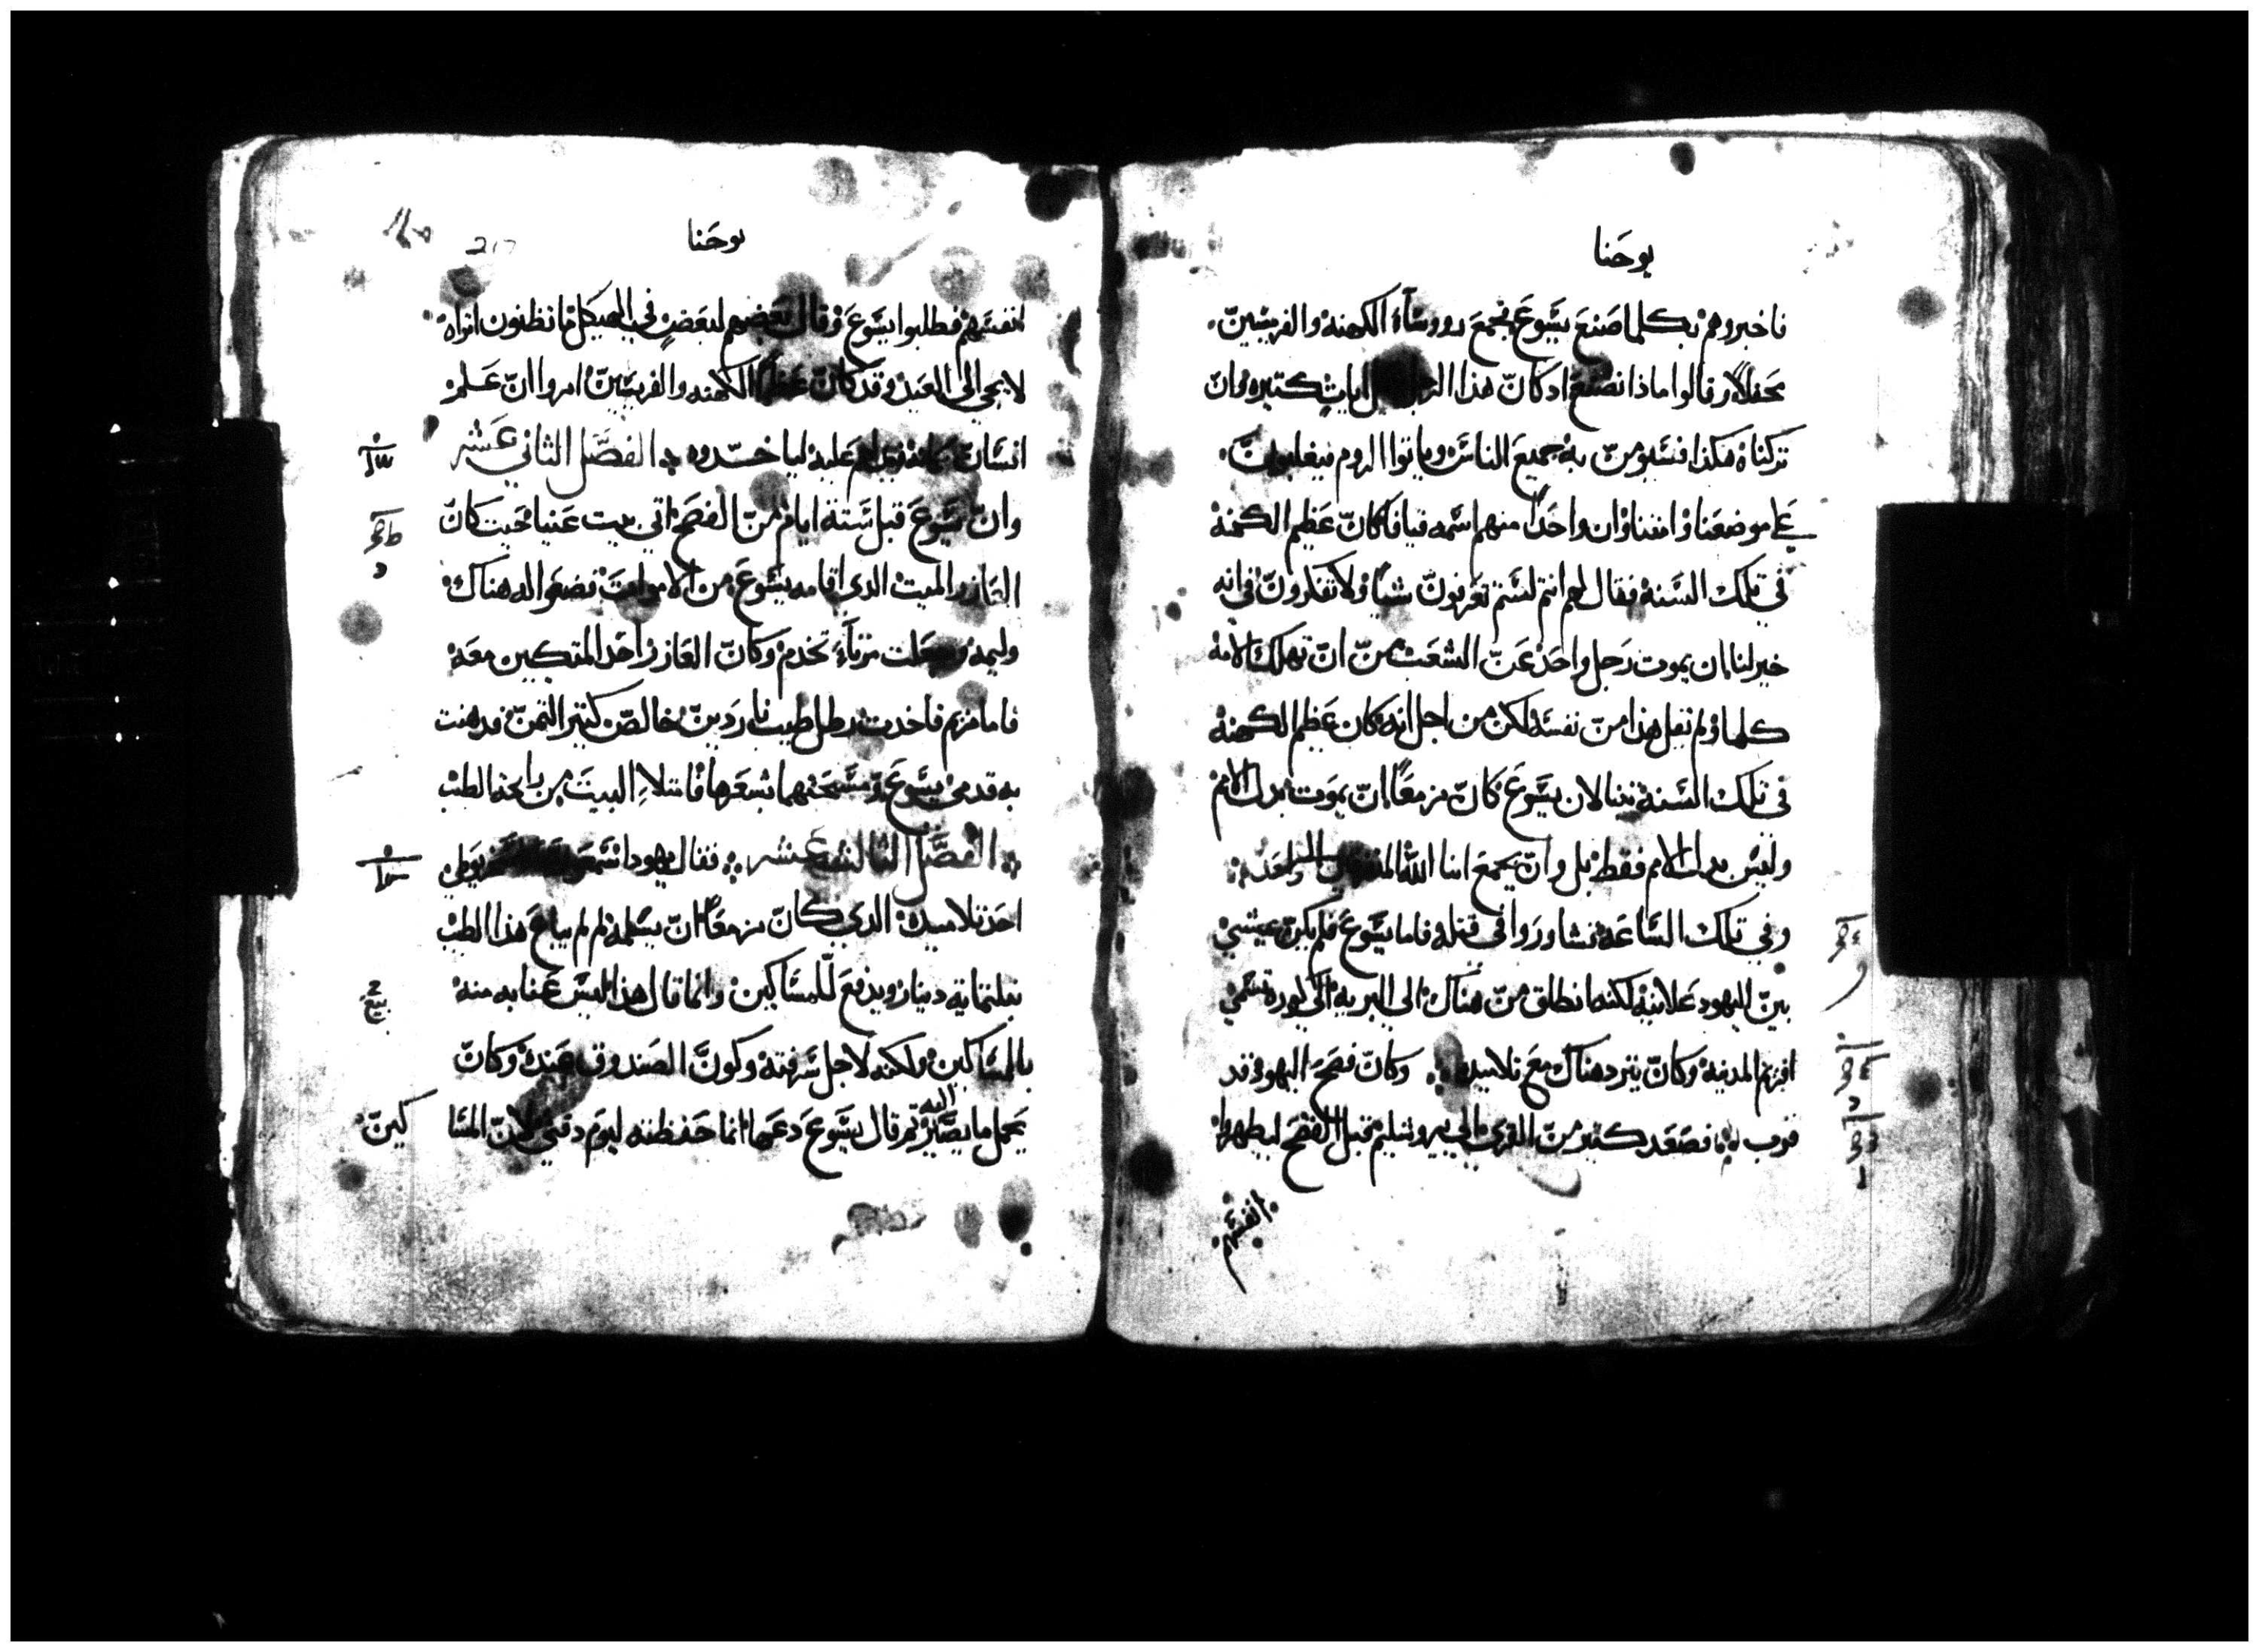 يوحنا
فاخبروهم بكلما صنع يسوع فجمع روساء الكهنة والفريسين
محفلا وقالوا ماذا نصنع اد كان هذا ايات كتيره وان
تركناه هكذا فسيومن به جميع الناس وياتوا الروم فيغلبون
على موضعنا وامتنا وان واحدا منهم اسمه قيافا كان عظيم الكهنة
في تلك السنة فقال لهم انتم لستم تعرفون شيا ولا تفكرون في انه
خير لنا ان يموت رجل واحد عن الشعب من ان تهلك الامة
كلها ولم يقل هذا من نفسه لكن من اجل انه كان عظيم الكهنة
في تلك السنة تنبا لان يسوع كان مزمعا ان يموت بدل الامم
وليس بدل الامم فقط بل وان يجمع ابنا الله الي واحد
وفي تلك الساعة تشاوروا في قتله فاما يسوع فلم يكن يمشي
بين اليهود علانية لكنه انطلق من هناك الي البريه الي كوره تسمي
افريم المدينة وكان يتردد هناك مع تلاميده وكان فصح اليهود قد
قرب فصعد كثير من القري الي يروشليم قبل الفصح ليطهروا
انفسهم
يوحنا
217
انفسهم فطلبوا يسوع وقال بعضهم لبعض في الهيكل ما تظنون اتراه
لا يجي الي العيد وقد كان عظما الكهنه والفريسين امروا ان علم
انسان عليه لياخدوه الفصل الثاني عشر
وان يسوع قبل ستة ايام من الفصح اتي بيت عنيا حيت كان
العازر الميت الدي اقامه يسوع من الاموات فصنعوا له هناك
وليمه وجعلت مرتا تخدم وكان العازر احد المتكين معه
فاما مريم فاخدت رطل طيب ناردين خالص كتير التمن فدهنت
به قدمي يسوع ومسحتهما بشعرها فامتلا البيت من رايحة الطيب
الفصل التالت عشر فقال يهودا
احد تلاميده الدي كان مزمعا ان يسلمه لم لم يباع هذا الطيب
بتلتماية دينار ويدفع للمساكين وانما قال هذا ليس عنايه منه
بالمساكين ولكنه لاجل سرقته وكون الصندوق عنده وكان
يحمل ما يصير اليه تم قال يسوع دعها انما حفظته ليوم دفني لان المسا
كين